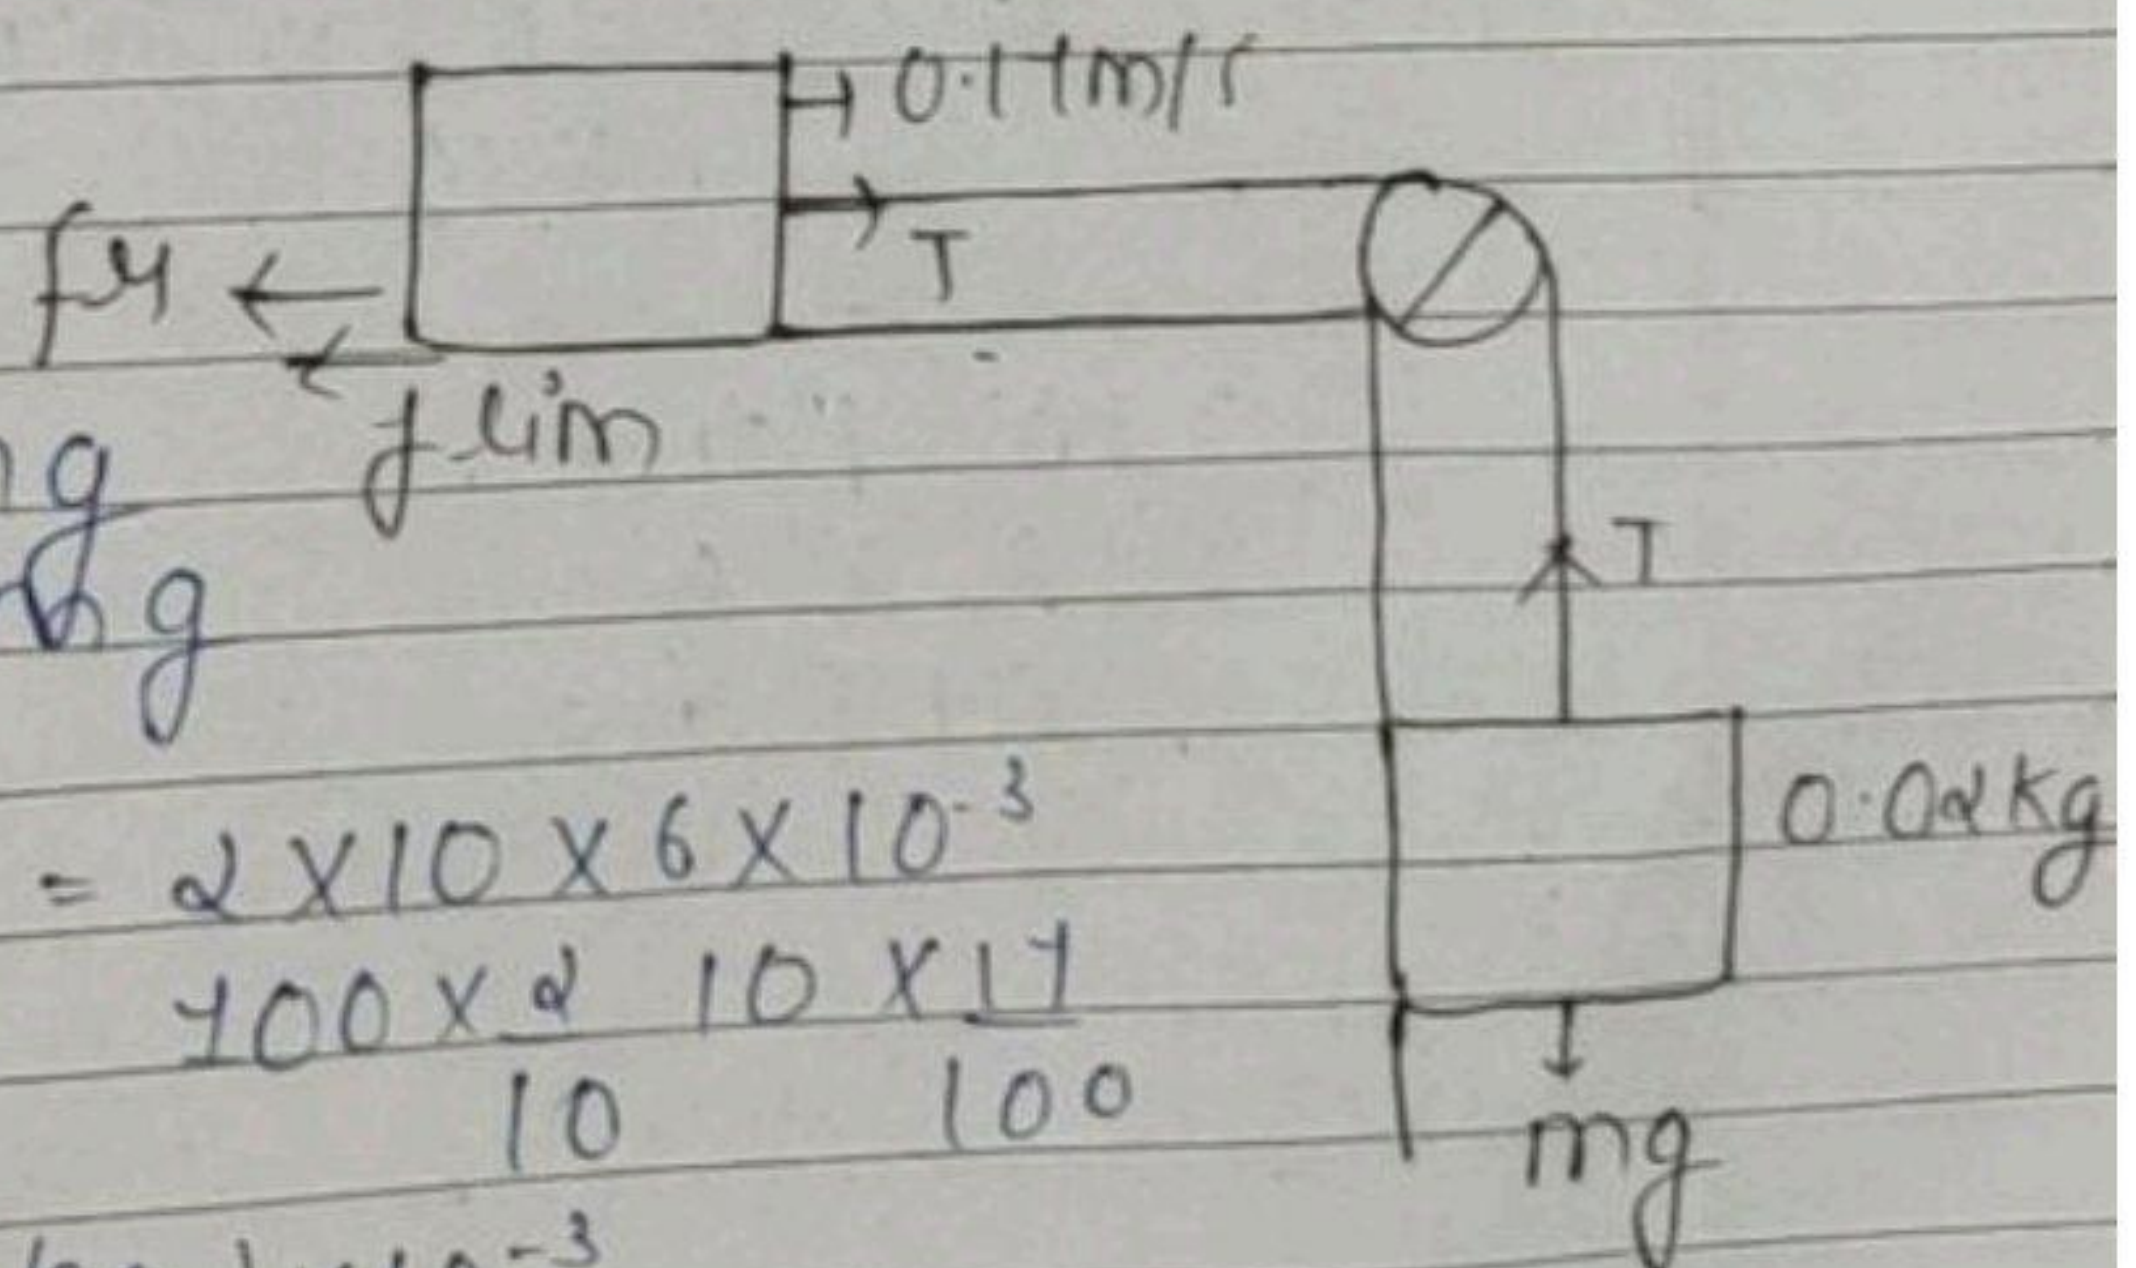 → 0.17m/s
fr ← → T
f lim
g
g
T
0.02kg
= 2 X 10 X 6 X 10-3
100 X 2 10 X 17
10 100
mg
-3